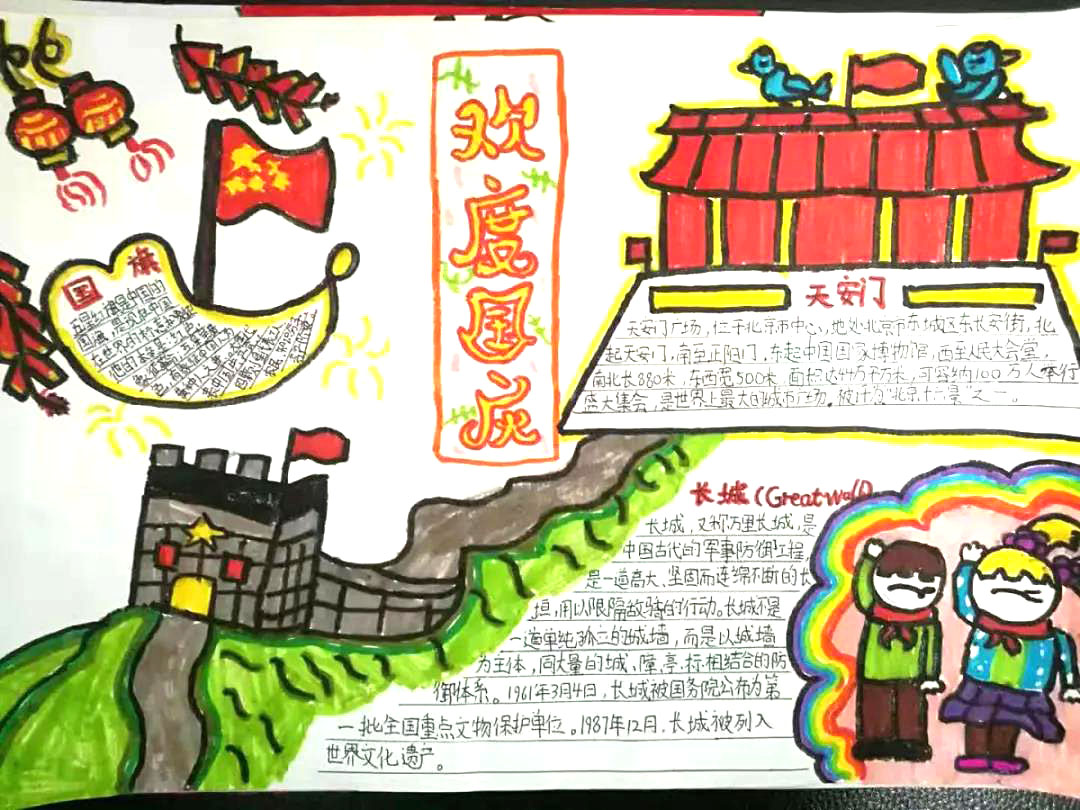 欢度国庆
国旗
五星红旗是中国的
国旗
天安门
天安门广场,位于北京市中心,地处北京市东城区东长安街,北
起天安门,南至正阳门,东起中国国家博物馆,西至人民大会堂,
南北长880米,东西宽500米,面积达44万平方米,可容纳100万人举行
盛大集会,是世界上最大的城市广场。被计为"北京十景"之一。
长城(Great wall)
长城,又称万里长城,是
中国古代的军事防御工程,
是一道高大、坚固而连绵不断的长
垣,用以限隔敌骑的行动。长城不是
一道单纯孤立的城墙,而是以城墙
为主体,同大量的城、障、亭、标相结合的防
御体系。1961年3月4日,长城被国务院公布为第
一批全国重点文物保护单位。1987年12月,长城被列入
世界文化遗产。